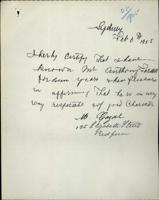 Sydney
Feb 8th 1905
I hereby Certify that I have
known Mr Anthony
for years and have pleasure
in affirming that he is in every
way respectable & of good Character
M
125 Elizabeth Street
Redfern